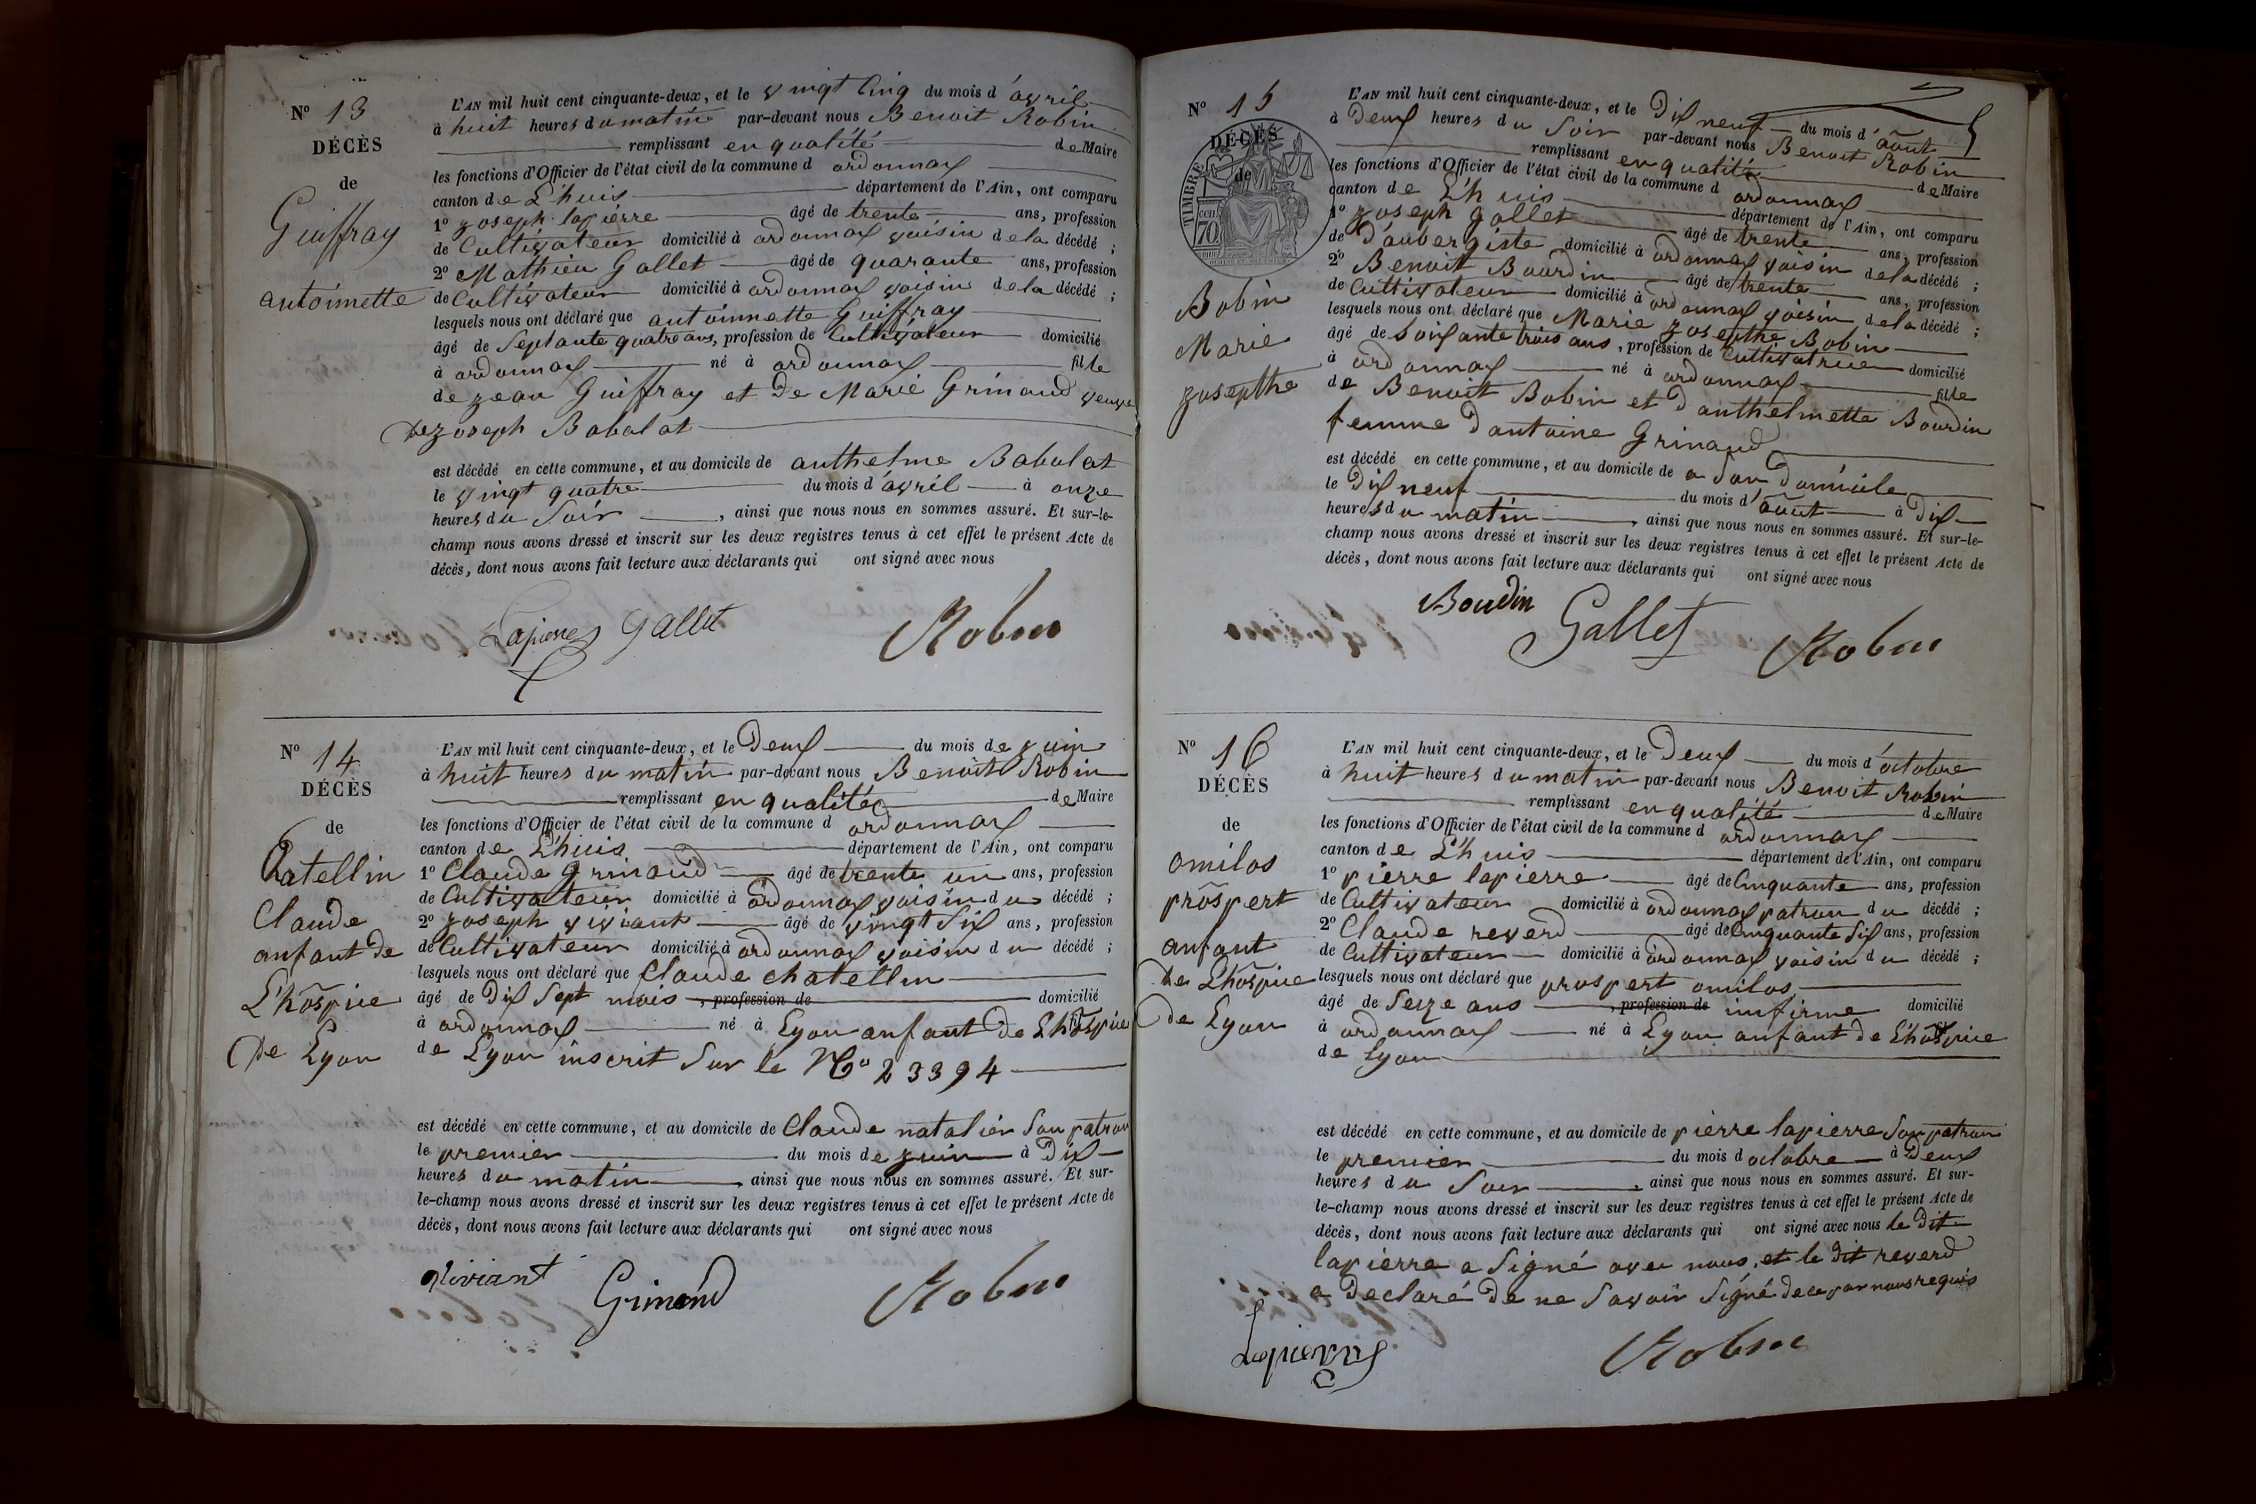 N° 13
DÉCÈS
de
Guiffray
antoinette
L'AN mil huit cent cinquante-deux, et le vingt Cinq du mois d'avril
à huit heures du matin par-devant nous Benoit Robin
remplissant en qualité de Maire
les fonctions d'Officier de l'état civil de la commune d ordonnax
canton de L'huis département de l'Ain, ont comparu
1° joseph lapierre âgé de trente ans, profession
de Cultivateur domicilié à ordonnax voisin de la décédé ;
2° Mathieu Gallet âgé de quarante ans, profession
de Cultivateur domicilié à ordonnax voisin de la décédé ;
lesquels nous ont déclaré que antoinnette Guiffray
âgé de Septante quatre ans, profession de Cultivateur domicilié
à ordonnax né à ordonnax fille
de jean Guiffray et de Marie Grinand veuve
de joseph Babolat
est décédé en cette commune, et au domicile de anthelme Babolat
le vingt quatre du mois d'avril à onze
heures du Soir, ainsi que nous nous en sommes assuré. Et sur-le-
champ nous avons dressé et inscrit sur les deux registres tenus à cet effet le présent Acte de
décès, dont nous avons fait lecture aux déclarants qui ont signé avec nous
Lapierre Gallet Robin
N° 14
DÉCÈS
de
Chatellin
Claude
anfant de
L'hospice
De Lyon
L'AN mil huit cent cinquante-deux, et le Deux du mois de juin
à huit heures du matin par-devant nous Benoit Robin
remplissant en qualité de Maire
les fonctions d'Officier de l'état civil de la commune d ordonnax
canton de L'huis département de l'Ain, ont comparu
1° Claude Grinand âgé de trente un ans, profession
de Cultivateur domicilié à ordonnax voisin du décédé ;
2° joseph viviant âgé de vingt Six ans, profession
de Cultivateur domicilié à ordonnax voisin du décédé ;
lesquels nous ont déclaré que Claude chatellin
âgé de Dix Sept mois, profession de domicilié
à ordonnax né à Lyon anfant de L'hospice
de Lyon inscrit Sur le N° 23394
est décédé en cette commune, et au domicile de Claude natalier Son patron
le premier du mois de juin à Dix
heures du matin, ainsi que nous nous en sommes assuré. Et sur-
le-champ nous avons dressé et inscrit sur les deux registres tenus à cet effet le présent Acte de
décès, dont nous avons fait lecture aux déclarants qui ont signé avec nous
viviant Grinand Robin
N° 15
DÉCÈS
de
TIMBRE
70
Bobin
Marie
josepthe
L'AN mil huit cent cinquante-deux, et le Dix neuf du mois d'août
à Deux heures du Soir par-devant nous Benoit Robin
remplissant en qualité de Maire
les fonctions d'Officier de l'état civil de la commune d ordonnax
canton de L'huis département de l'Ain, ont comparu
1° joseph Gallet âgé de trente ans, profession
de D'aubergiste domicilié à ordonnax voisin de la décédé ;
2° Benoit Bourdin âgé de trente ans, profession
de Cultivateur domicilié à ordonnax voisin de la décédé ;
lesquels nous ont déclaré que Marie josepthe Bobin
âgé de Soixante trois ans, profession de Cultivatrice domicilié
à ordonnax né à ordonnax fille
de Benoit Bobin et d'anthelmette Bourdin
femme d'antoine Grinand
est décédé en cette commune, et au domicile de a Son Domicile
le Dix neuf du mois d'août à Dix
heures du matin, ainsi que nous nous en sommes assuré. Et sur-le-
champ nous avons dressé et inscrit sur les deux registres tenus à cet effet le présent Acte de
décès, dont nous avons fait lecture aux déclarants qui ont signé avec nous
Bourdin Gallet Robin
N° 16
DÉCÈS
de
omilos
prospert
anfant
De L'hospice
De Lyon
L'AN mil huit cent cinquante-deux, et le Deux du mois d'octobre
à huit heures du matin par-devant nous Benoit Robin
remplissant en qualité de Maire
les fonctions d'Officier de l'état civil de la commune d ordonnax
canton de L'huis département de l'Ain, ont comparu
1° pierre lapierre âgé de Cinquante ans, profession
de Cultivateur domicilié à ordonnax patron du décédé ;
2° Claude reverd âgé de Cinquante Six ans, profession
de Cultivateur domicilié à ordonnax voisin du décédé ;
lesquels nous ont déclaré que prospert omilos
âgé de Seize ans, profession de imfirme domicilié
à ordonnax né à Lyon anfant de L'hospice
de Lyon
est décédé en cette commune, et au domicile de pierre lapierre Son patron
le premier du mois d octobre à Deux
heures du Soir, ainsi que nous nous en sommes assuré. Et sur-
le-champ nous avons dressé et inscrit sur les deux registres tenus à cet effet le présent Acte de
décès, dont nous avons fait lecture aux déclarants qui ont signé avec nous le Dit
lapierre a Signé avec nous, et le Dit reverd
a Déclaré De ne Savoir Signé de ce par nous requis
Lapierre Robin